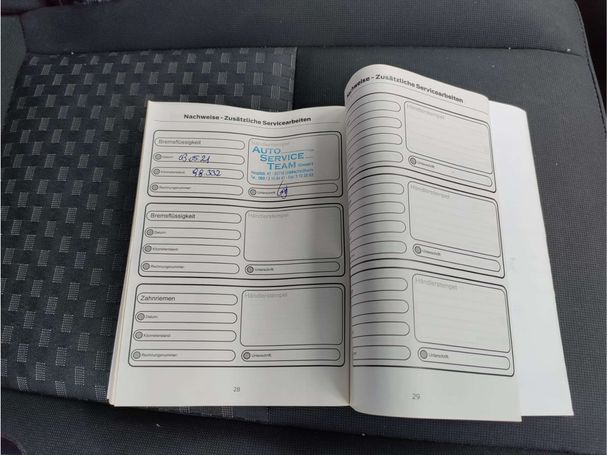 Nachweise - Zusätzliche Servicearbeiten
Bremsflüssigkeit
Datum
Kilometerstand 98.332
Rechnungsnummer
Händlerstempel
AUTO
SERVICE
TEAM
Unterschrift
Bremsflüssigkeit
Datum
Kilometerstand
Rechnungsnummer
Händlerstempel
Unterschrift
Zahnriemen
Datum
Kilometerstand
Rechnungsnummer
Händlerstempel
Unterschrift
28
Nachweise - Zusätzliche Servicearbeiten
Händlerstempel
Händlerstempel
Unterschrift
Händlerstempel
Unterschrift
29